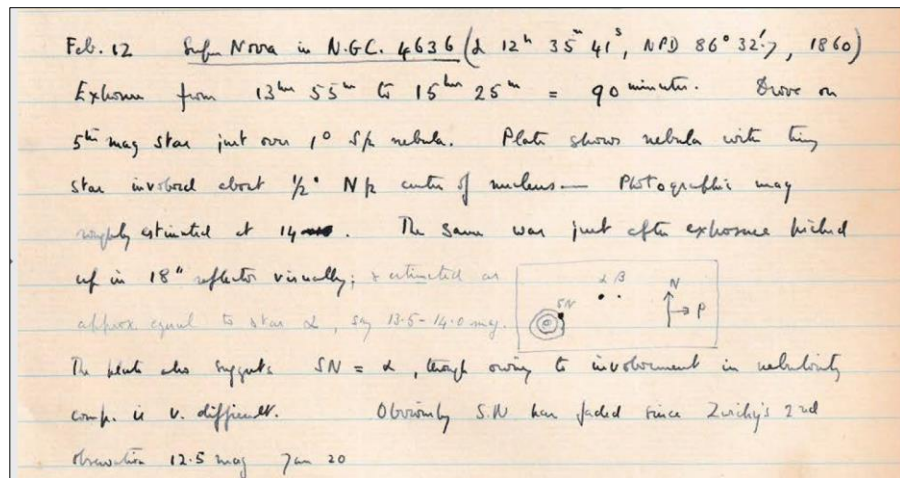 Feb. 12 Super Nova in N.G.C. 4636 (α 12h 35m 41s, NPD 86° 32'.7, 1860)
Exposure from 13hrs 55m to 15hrs 25m = 90 minutes. Drove on
5th mag star just over 1° S/p nebula. Plate shows nebula with tiny
star involved about ½' Np centre of nucleus — Photographic mag
roughly estimated at 14. The same was just after exposure picked
up in 18" reflector visually; & estimated as
approx. equal to star α, say 13.5-14.0 mag.
SN α β N P
The plate also suggests SN = α, though owing to involvement in nebulosity
comp. is v. difficult. Obviously S.N has faded since Zwicky's 2nd
observation 12.5 mag Jan 20